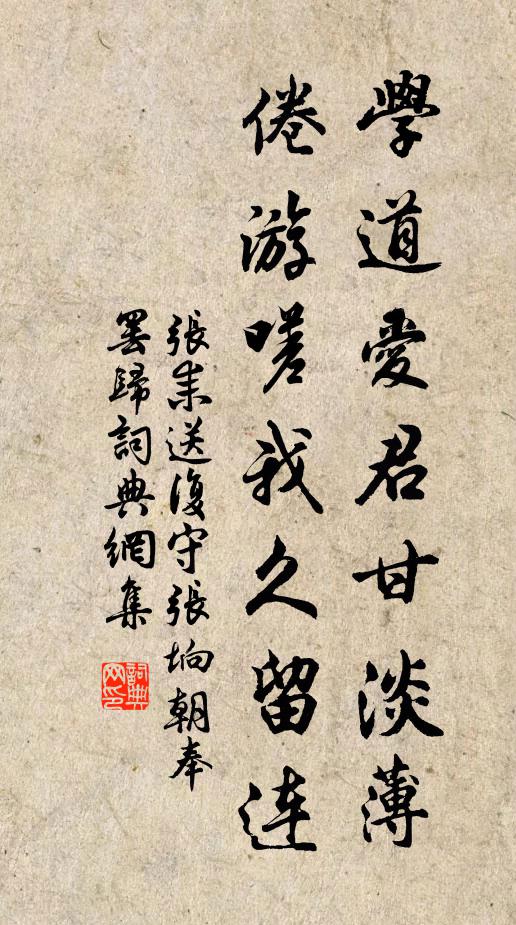 學道愛君甘淡薄
倦游嗟我久留連
張耒送復守張垧朝奉
罢歸詞典網集
詞典
网印